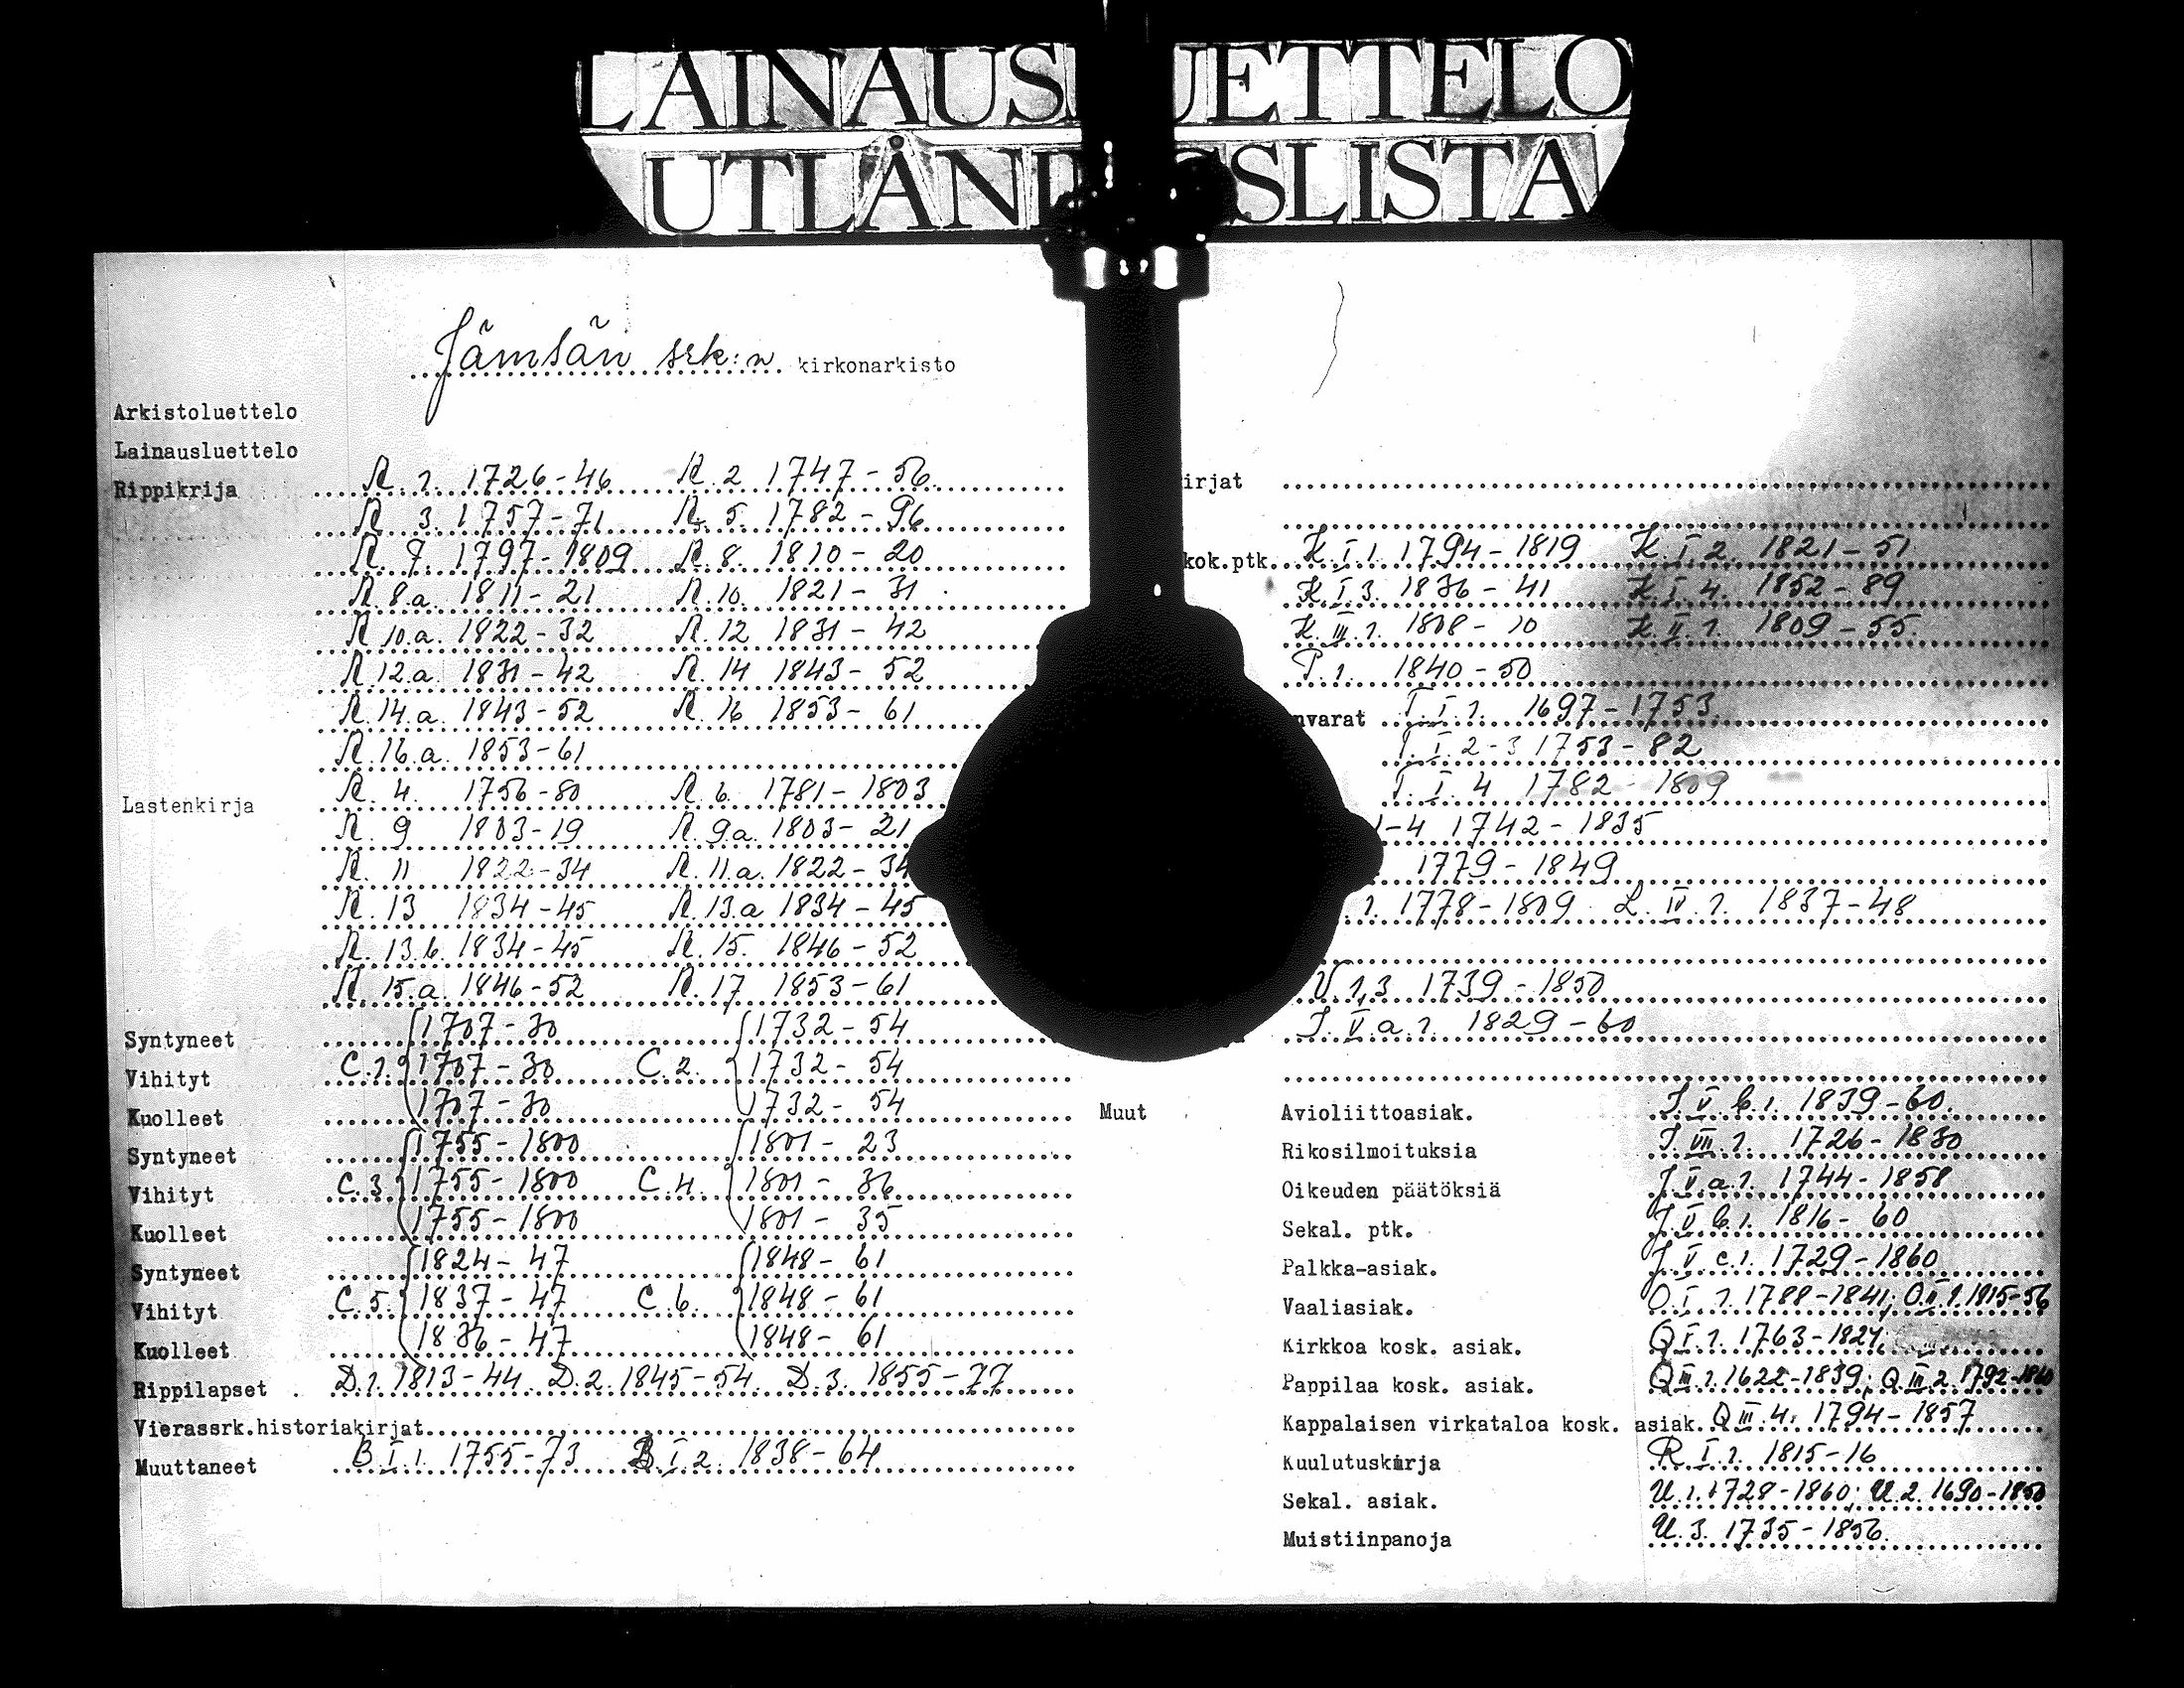 LAINAUS UETTELO
UTLÅN SLISTA
Jämsän srk:n kirkonarkisto
Arkistoluettelo
Lainausluettelo
Rippikrija R. 1. 1726-46 R. 2 1747-56
R. 3. 1757-71 R. 5. 1782-96
R. 7. 1797-1809 R. 8. 1810-20
R. 8.a. 1811-21 R. 10. 1821-31
R. 10.a. 1822-32 R. 12 1831-42
R. 12.a. 1831-42 R. 14 1843-52
R. 14.a. 1843-52 R. 16 1853-61
R. 16.a. 1853-61
Lastenkirja R. 4. 1756-80 R. 6. 1781-1803
R. 9 1803-19 R. 9.a. 1803-21
R. 11 1822-34 R. 11.a. 1822-34
R. 13 1834-45 R. 13.a 1834-45
R. 13.b. 1834-45 R. 15. 1846-52
R. 15.a. 1846-52 R. 17 1853-61
Syntyneet 1707-30 1732-54
Vihityt C. 1. 1707-30 C. 2. 1732-54
Kuolleet 1707-30 1732-54
Syntyneet 1755-1800 1801-23
Vihityt C. 3. 1755-1800 C. 4. 1801-36
Kuolleet 1755-1800 1801-35
Syntyneet 1824-47 1848-61
Vihityt C. 5. 1837-47 C. 6. 1848-61
Kuolleet 1836-47 1848-61
Rippilapset D. 1. 1813-44 D. 2. 1845-54 D. 3. 1855-77
Vierassrk.historiakirjat
Muuttaneet B. I. 1. 1755-73 B. I. 2. 1838-64
irjat
kok.ptk. K. I. 1. 1794-1819 K. I. 2. 1821-51
K. I. 3. 1836-41 K. I. 4. 1852-89
K. III. 1. 1808-10 K. II. 1. 1809-55
P. 1. 1840-50
nvarat T. I. 1. 1697-1753
T. I. 2-3 1753-82
T. I. 4 1782-1809
1-4 1742-1835
1779-1849
1. 1778-1809 L. IV. 1. 1837-48
V. 1,3 1739-1850
I. V. a. 1. 1829-60
Muut Avioliittoasiak. I. V. b. 1. 1839-60.
Rikosilmoituksia I. VII. 1. 1726-1830
Oikeuden päätöksiä J. V. a. 1. 1744-1858
Sekal. ptk. J. V. b. 1. 1816-60
Palkka-asiak. J. V. c. 1. 1729-1860
Vaaliasiak. O. I. 1. 1788-1841; O. II. 1. 1815-56
Kirkkoa kosk. asiak. Q I. 1. 1763-1824;
Pappilaa kosk. asiak. Q III. 1. 1622-1839; Q III. 2. 1792-1860
Kappalaisen virkataloa kosk. asiak. Q III. 4. 1794-1857
Kuulutuskirja R. I. 1. 1815-16
Sekal. asiak. U. 1. 1728-1860; U. 2. 1690-1850
Muistiinpanoja U. 3. 1735-1856.